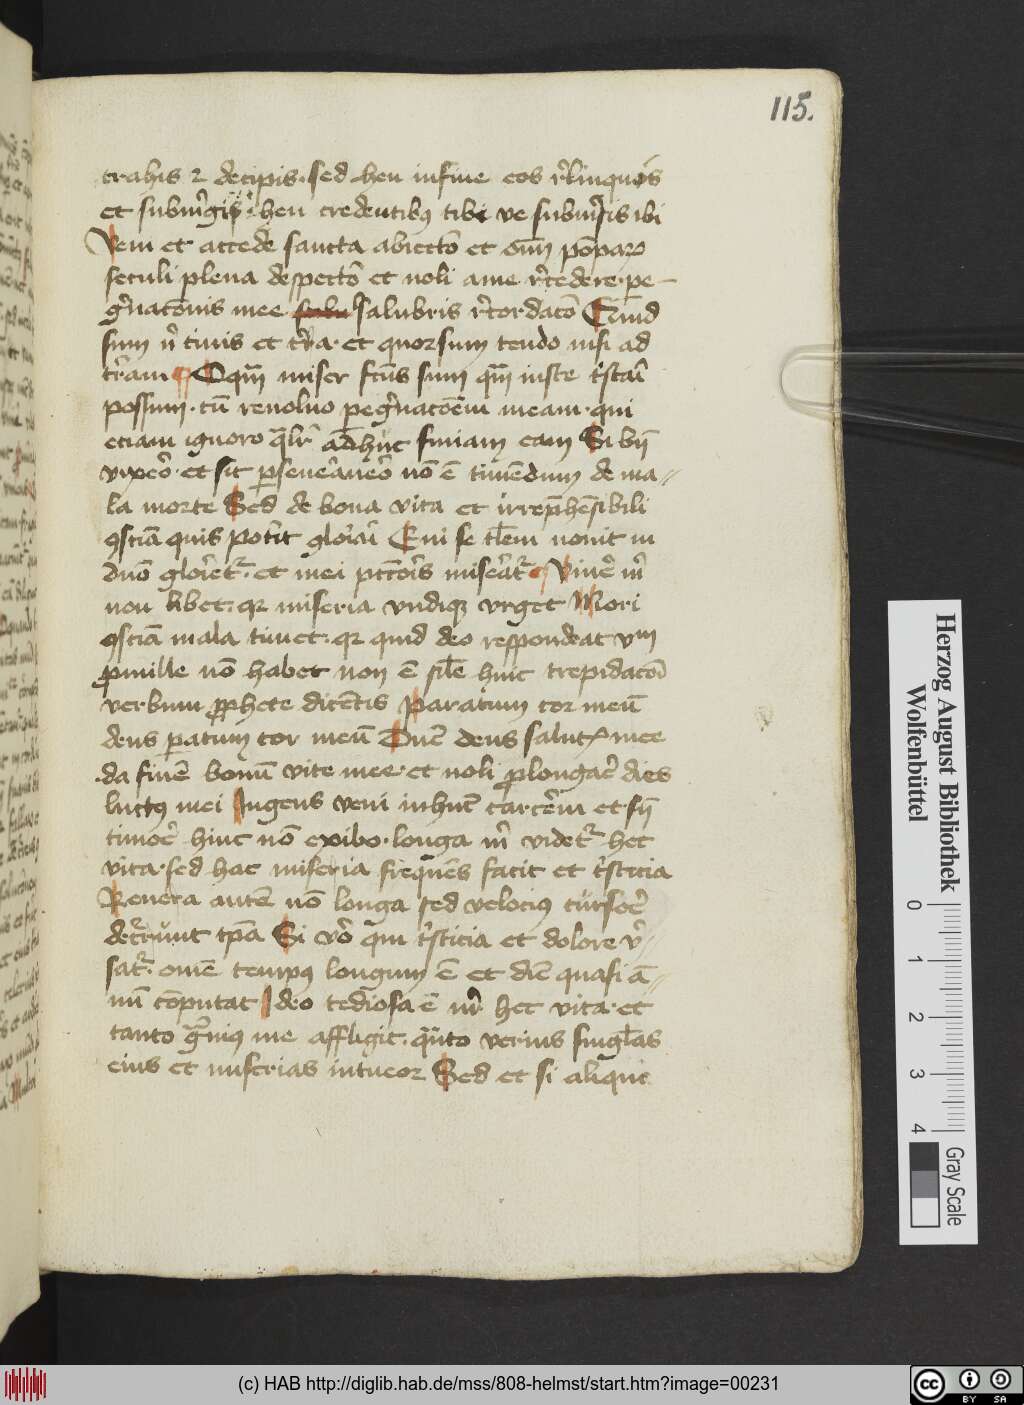 115.
trahis et decipis. sed heu in fine eos relinquis
et submgis heu credentibus tibi ve submsis ibi
Veni et accede sancta abiectio et omnium pomparum
seculi plena despectio et noli a me recedere. pe-
gnaconis mee salubris recordacio
sum nisi cinis et terra. et quorsum tendo nisi ad
terram O quam miser factus sum quam iuste tristari
possum. cum revoluo peregrinacionem meam. qui
eciam ignoro qualiter adhuc finiam eam Si bene
vixero. et sic perseueravero non est timendum de ma-
la morte Sed de bona vita et irreprehensibili
consciencia quis poterit gloriari Qui se talem nouit in
domino glorietur. et mei peccatoris misereatur Viuere michi
non libet. quia miseria vndique vrget Mori
consciencia mala timet. quia quid deo respondeat vnum
pro mille non habet non est simile huic trepidacioni
verbum prophete dicentis Paratum cor meum
deus paratum cor meum Domine deus salutis mee
da finem bonum vite mee. et noli prolongare dies
luctus mei Ingens veni in hunc carcerem et sine
timore hinc non exibo. longa michi videtur hec
vita. sed hac miseria frequens facit et tristicia
Revera autem non longa sed velocius cursore
decurrunt tempora Si vero quem tristicia et dolore ver-
satur. omne tempus longum est et diem quasi an-
num computat Ideo tediosa est michi hec vita. et
tanto grauius me affligit. quanto verius singulas
eius et miserias intueor Sed et si aliquis
Herzog August Bibliothek
Wolfenbüttel
0 1 2 3 4
Gray Scale
(c) HAB http://diglib.hab.de/mss/808-helmst/start.htm?image=00231
cc BY SA